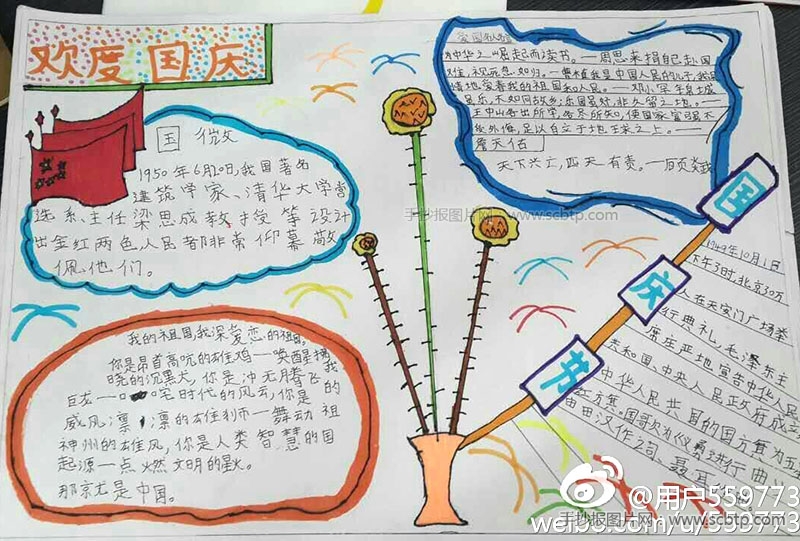 欢度国庆
国徽
1950年6月20日,我国著名
建筑学家、清华大学营
造系主任梁思成教授等设计
出金红两色人民都非常仰慕敬
佩他们。
我的祖国,我深爱恋的祖国。
你是昂首高吭的雄鸡一唤醒拂
晓的沉黑,你是冲天腾飞
巨龙一
时代的风云,你是
威风凛凛的雄狮一舞动
神州的雄风,你是人类智慧的
起源一点燃文明的星火。
那就是中国。
中华之崛起而读书。——周恩来捐自己赴国
视死忽如归。一曹植我是中国人民的儿子,我深
情地爱着我的祖国和人民。——邓小平
乐,不如回故乡;乐园虽好,非久留之地。——
王中山各出所学,各尽所知,使国家富强不
受外侮,足以自立于地球之上。——
詹天佑
天下兴亡,匹夫有责。——顾炎武
国庆节
1949年10月1日
下午3时,北京30万
人在天安门广场举
行典礼,毛泽东主
席庄严地宣告中华人民
共和国、中央人民政府成立
中华人民共和国的国方旗为五
红方旗。国歌为《义勇进行曲
田汉作词 聂耳
手抄报图片网 www.scbtp.com
@用户559773
weibo.com/u/559773
手抄报图片网 www.scbtp.com